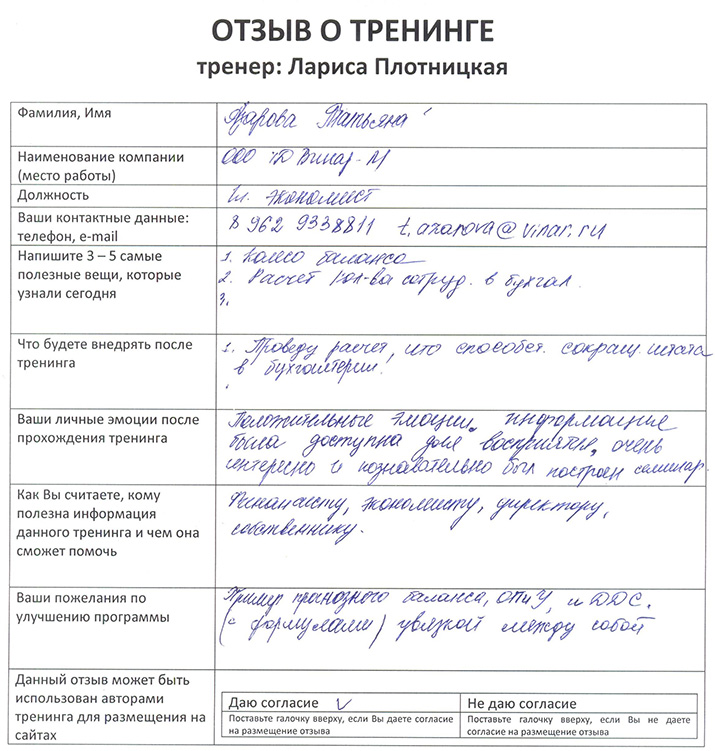 ОТЗЫВ О ТРЕНИНГЕ
тренер: Лариса Плотницкая
Фамилия, Имя
Азарова Татьяна
Наименование компании
(место работы)
ООО ТД Винар-М
Должность
Гл. экономист
Ваши контактные данные:
телефон, e-mail
8 962 9338811 t.azarova@vinar.ru
Напишите 3 – 5 самые
полезные вещи, которые
узнали сегодня
1. Колесо баланса
2. Расчет кол-ва сотруд. в бухгал.
3.
Что будете внедрять после
тренинга
1. Проведу расчет, что способст. сокращ. штата
в бухгалтерии!
Ваши личные эмоции после
прохождения тренинга
Положительные эмоции, информация
была доступна для восприятия, очень
интересно и познавательно был построен семинар.
Как Вы считаете, кому
полезна информация
данного тренинга и чем она
сможет помочь
Финансисту, экономисту, директору,
собственнику.
Ваши пожелания по
улучшению программы
Пример прогнозного баланса, ОПиУ, и ДДС.
(с формулами) увязкой между собой
Данный отзыв может быть
использован авторами
тренинга для размещения на
сайтах
Даю согласие V
Поставьте галочку вверху, если Вы даете согласие
на размещение отзыва
Не даю согласие
Поставьте галочку вверху, если Вы не даете
согласие на размещение отзыва